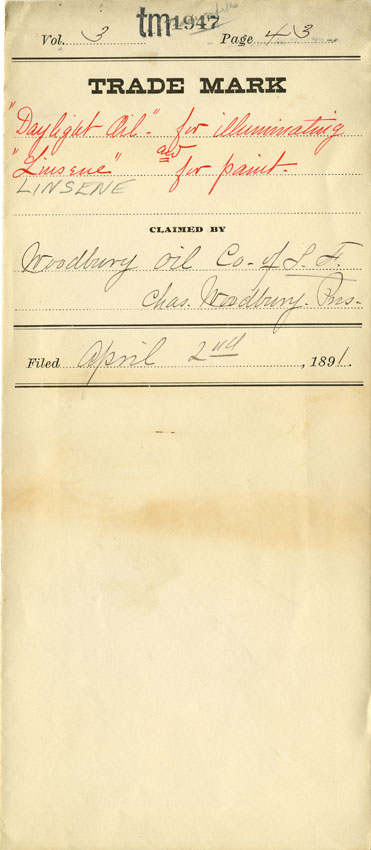 tm1947
Vol. 3 Page 43
TRADE MARK
"Daylight Oil" - for illuminating
and
"Linsene" for paint -
LINSENE
CLAIMED BY
Woodbury Oil Co - of S. F.
Chas. Woodbury. Pres -
Filed April 2nd, 1891.